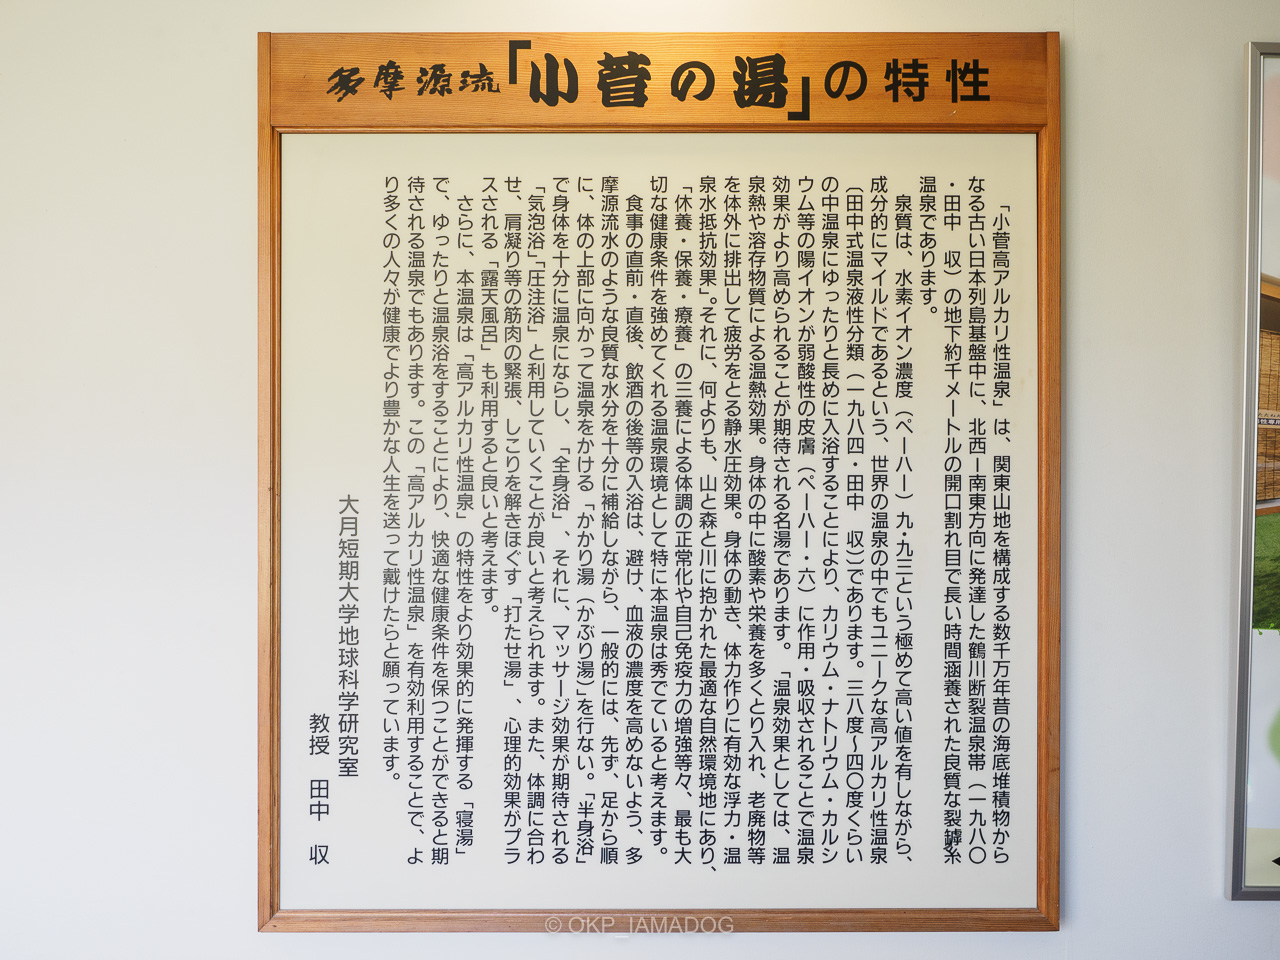 多摩源流「小菅の湯」の特性
「小菅高アルカリ性温泉」は、関東山地を構成する数千万年昔の海底堆積物から
なる古い日本列島基盤中に、北西ー南東方向に発達した鶴川断裂温泉帯（一九八〇
・田中　収）の地下約千メートルの開口割れ目で長い時間涵養された良質な裂罅系
温泉であります。
泉質は、水素イオン濃度（ペーハー）九・九三という極めて高い値を有しながら、
成分的にマイルドであるという、世界の温泉の中でもユニークな高アルカリ性温泉
（田中式温泉液性分類（一九八四・田中　収））であります。三八度～四〇度くらい
の中温泉にゆったりと長めに入浴することにより、カリウム・ナトリウム・カルシ
ウム等の陽イオンが弱酸性の皮膚（ペーハー・六）に作用・吸収されることで温泉
効果がより高められることが期待される名湯であります。「温泉効果としては、温
泉熱や溶存物質による温熱効果。身体の中に酸素や栄養を多くとり入れ、老廃物等
を体外に排出して疲労をとる静水圧効果。身体の動き、体力作りに有効な浮力・温
泉水抵抗効果」。それに、何よりも、山と森と川に抱かれた最適な自然環境地にあり、
「休養・保養・療養」の三養による体調の正常化や自己免疫力の増強等々、最も大
切な健康条件を強めてくれる温泉環境として特に本温泉は秀でていると考えます。
食事の直前・直後、飲酒の後等の入浴は、避け、血液の濃度を高めないよう、多
摩源流水のような良質な水分を十分に補給しながら、一般的には、先ず、足から順
に、体の上部に向かって温泉をかける「かかり湯（かぶり湯）」を行ない。「半身浴」
で身体を十分に温泉にならし、「全身浴」、それに、マッサージ効果が期待される
「気泡浴」「圧注浴」と利用していくことが良いと考えられます。また、体調に合わ
せ、肩凝り等の筋肉の緊張、しこりを解きほぐす「打たせ湯」、心理的効果がプラ
スされる「露天風呂」も利用すると良いと考えます。
さらに、本温泉は「高アルカリ性温泉」の特性をより効果的に発揮する「寝湯」
で、ゆったりと温泉浴をすることにより、快適な健康条件を保つことができると期
待される温泉でもあります。この「高アルカリ性温泉」を有効利用することで、よ
り多くの人々が健康でより豊かな人生を送って戴けたらと願っています。
大月短期大学地球科学研究室
教授　田中　収
© OKP_JAMADOG